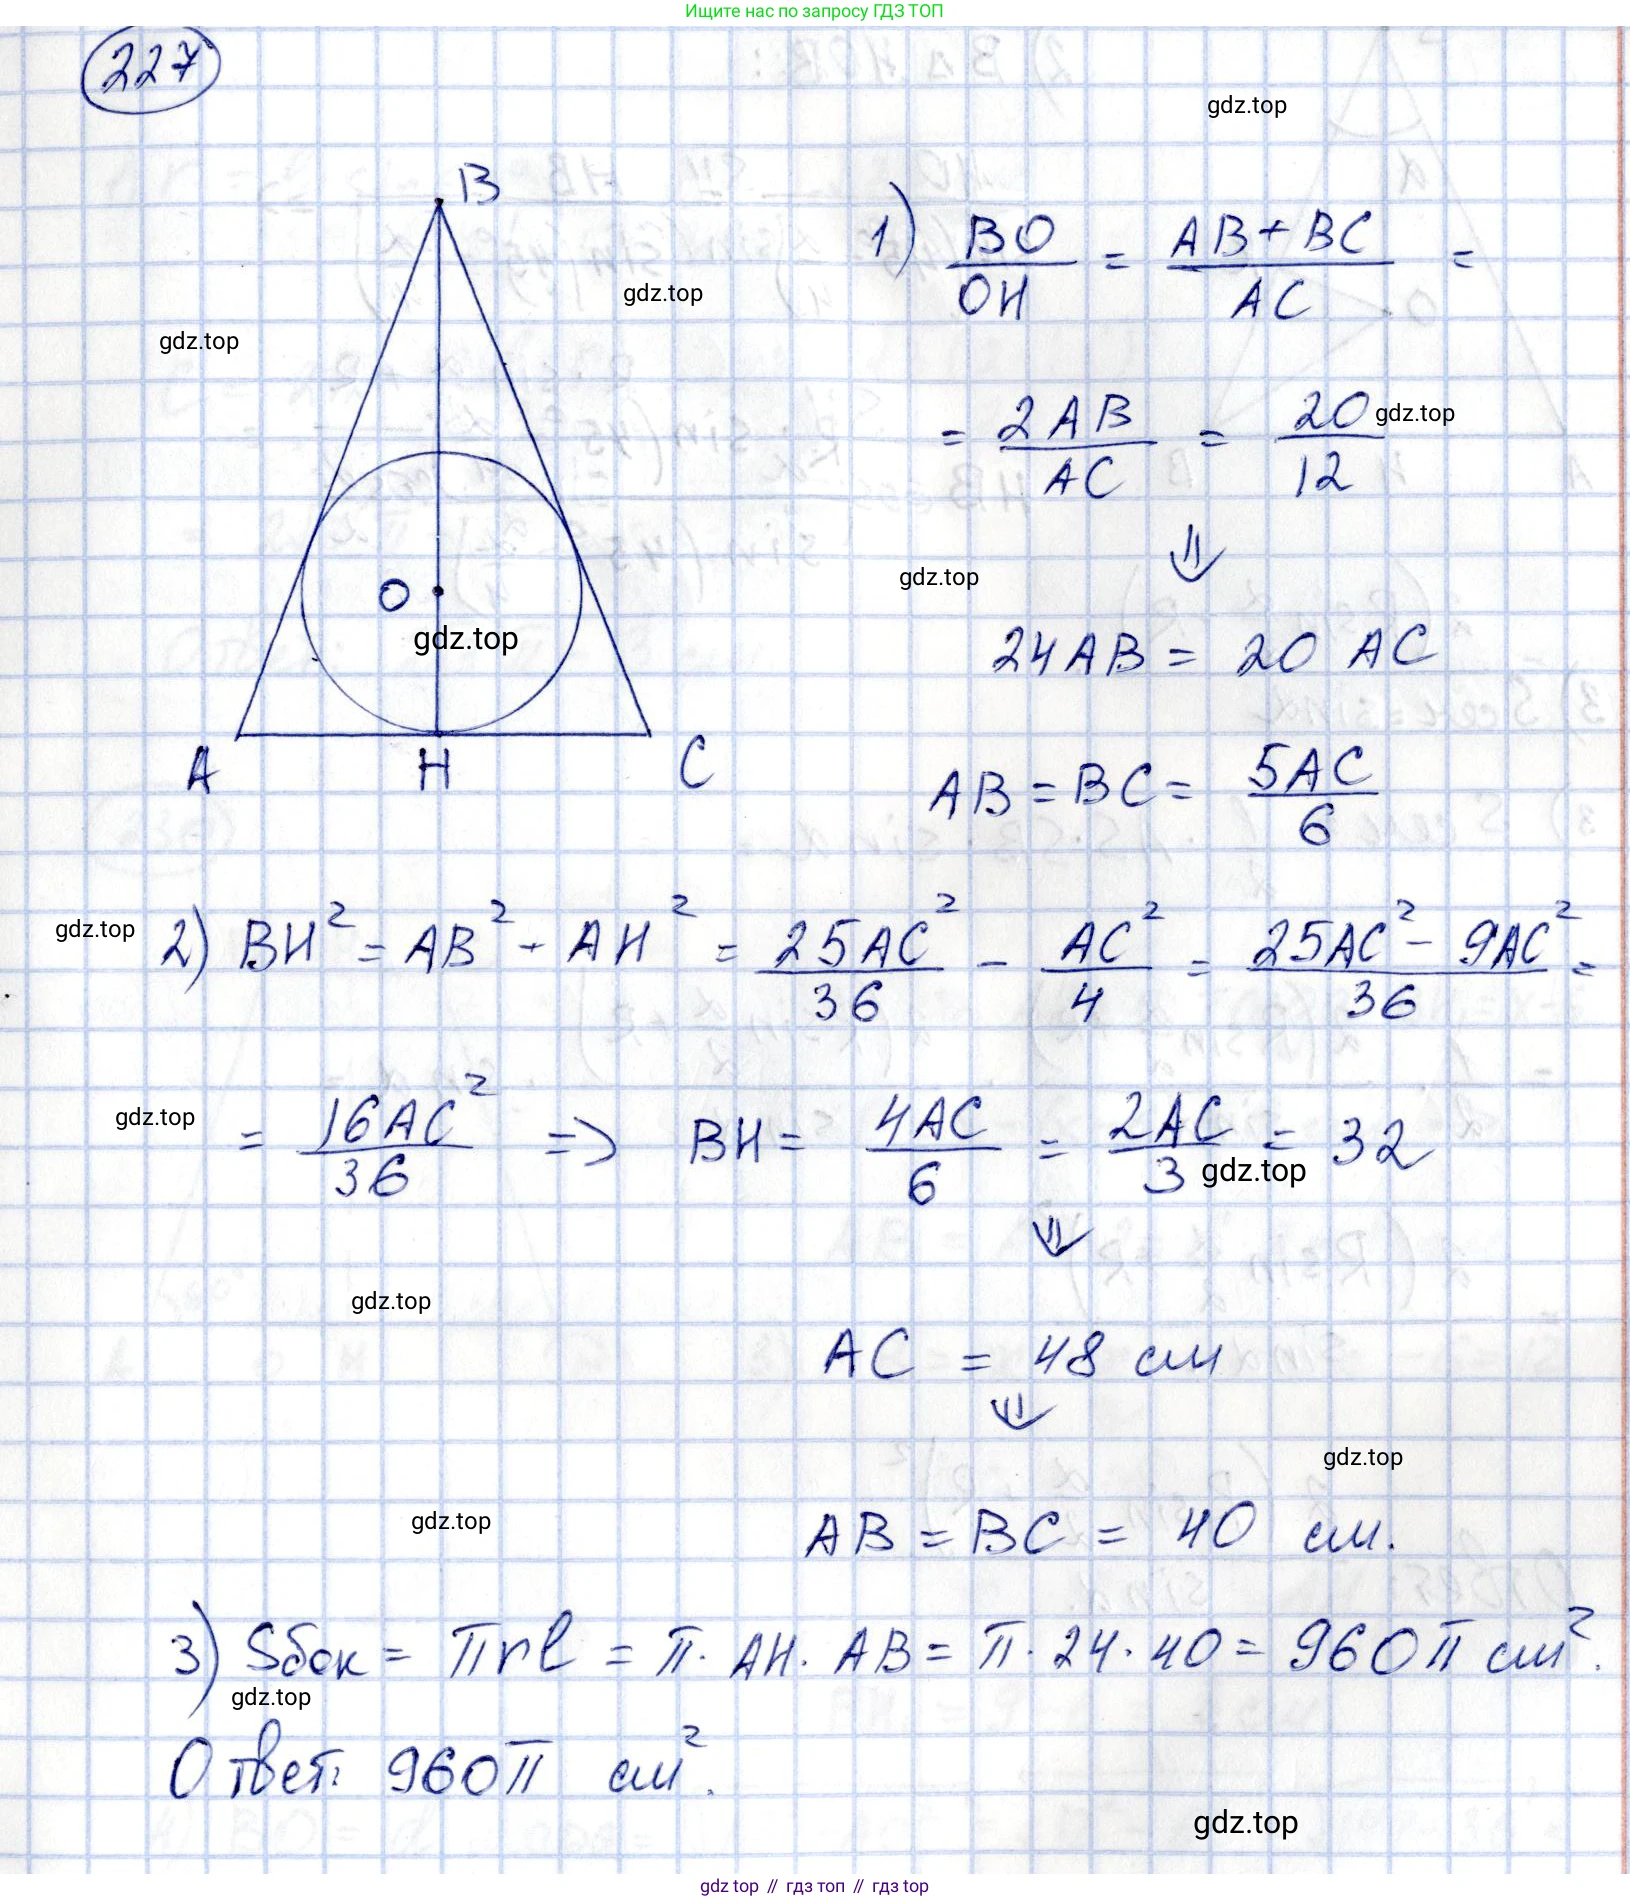 Ищите нас по запросу ГДЗ ТОП
227
gdz.top
B
1) BO/OH = (AB+BC)/AC =
gdz.top
gdz.top
= 2AB/AC = 20/12 gdz.top
⇓
O
gdz.top
gdz.top
24AB = 20 AC
A H C
AB = BC = 5AC/6
gdz.top
2) BH² = AB² - AH² = 25AC²/36 - AC²/4 = (25AC² - 9AC²)/36 =
gdz.top
= 16AC²/36 => BH = 4AC/6 = 2AC/3 = 32
gdz.top
⇓
gdz.top
AC = 48 см
⇓
gdz.top
gdz.top
AB = BC = 40 см.
3) Sбок = πrl = π · AH · AB = π · 24 · 40 = 960π см².
gdz.top
Ответ: 960π см².
gdz.top
gdz top // гдз топ // гдз top